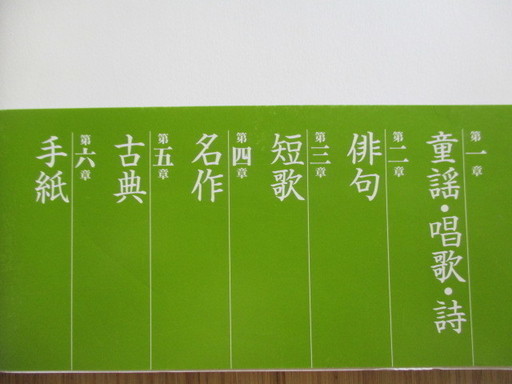 第一章
童謡・唱歌・詩
第二章
俳句
第三章
短歌
第四章
名作
第五章
古典
第六章
手紙